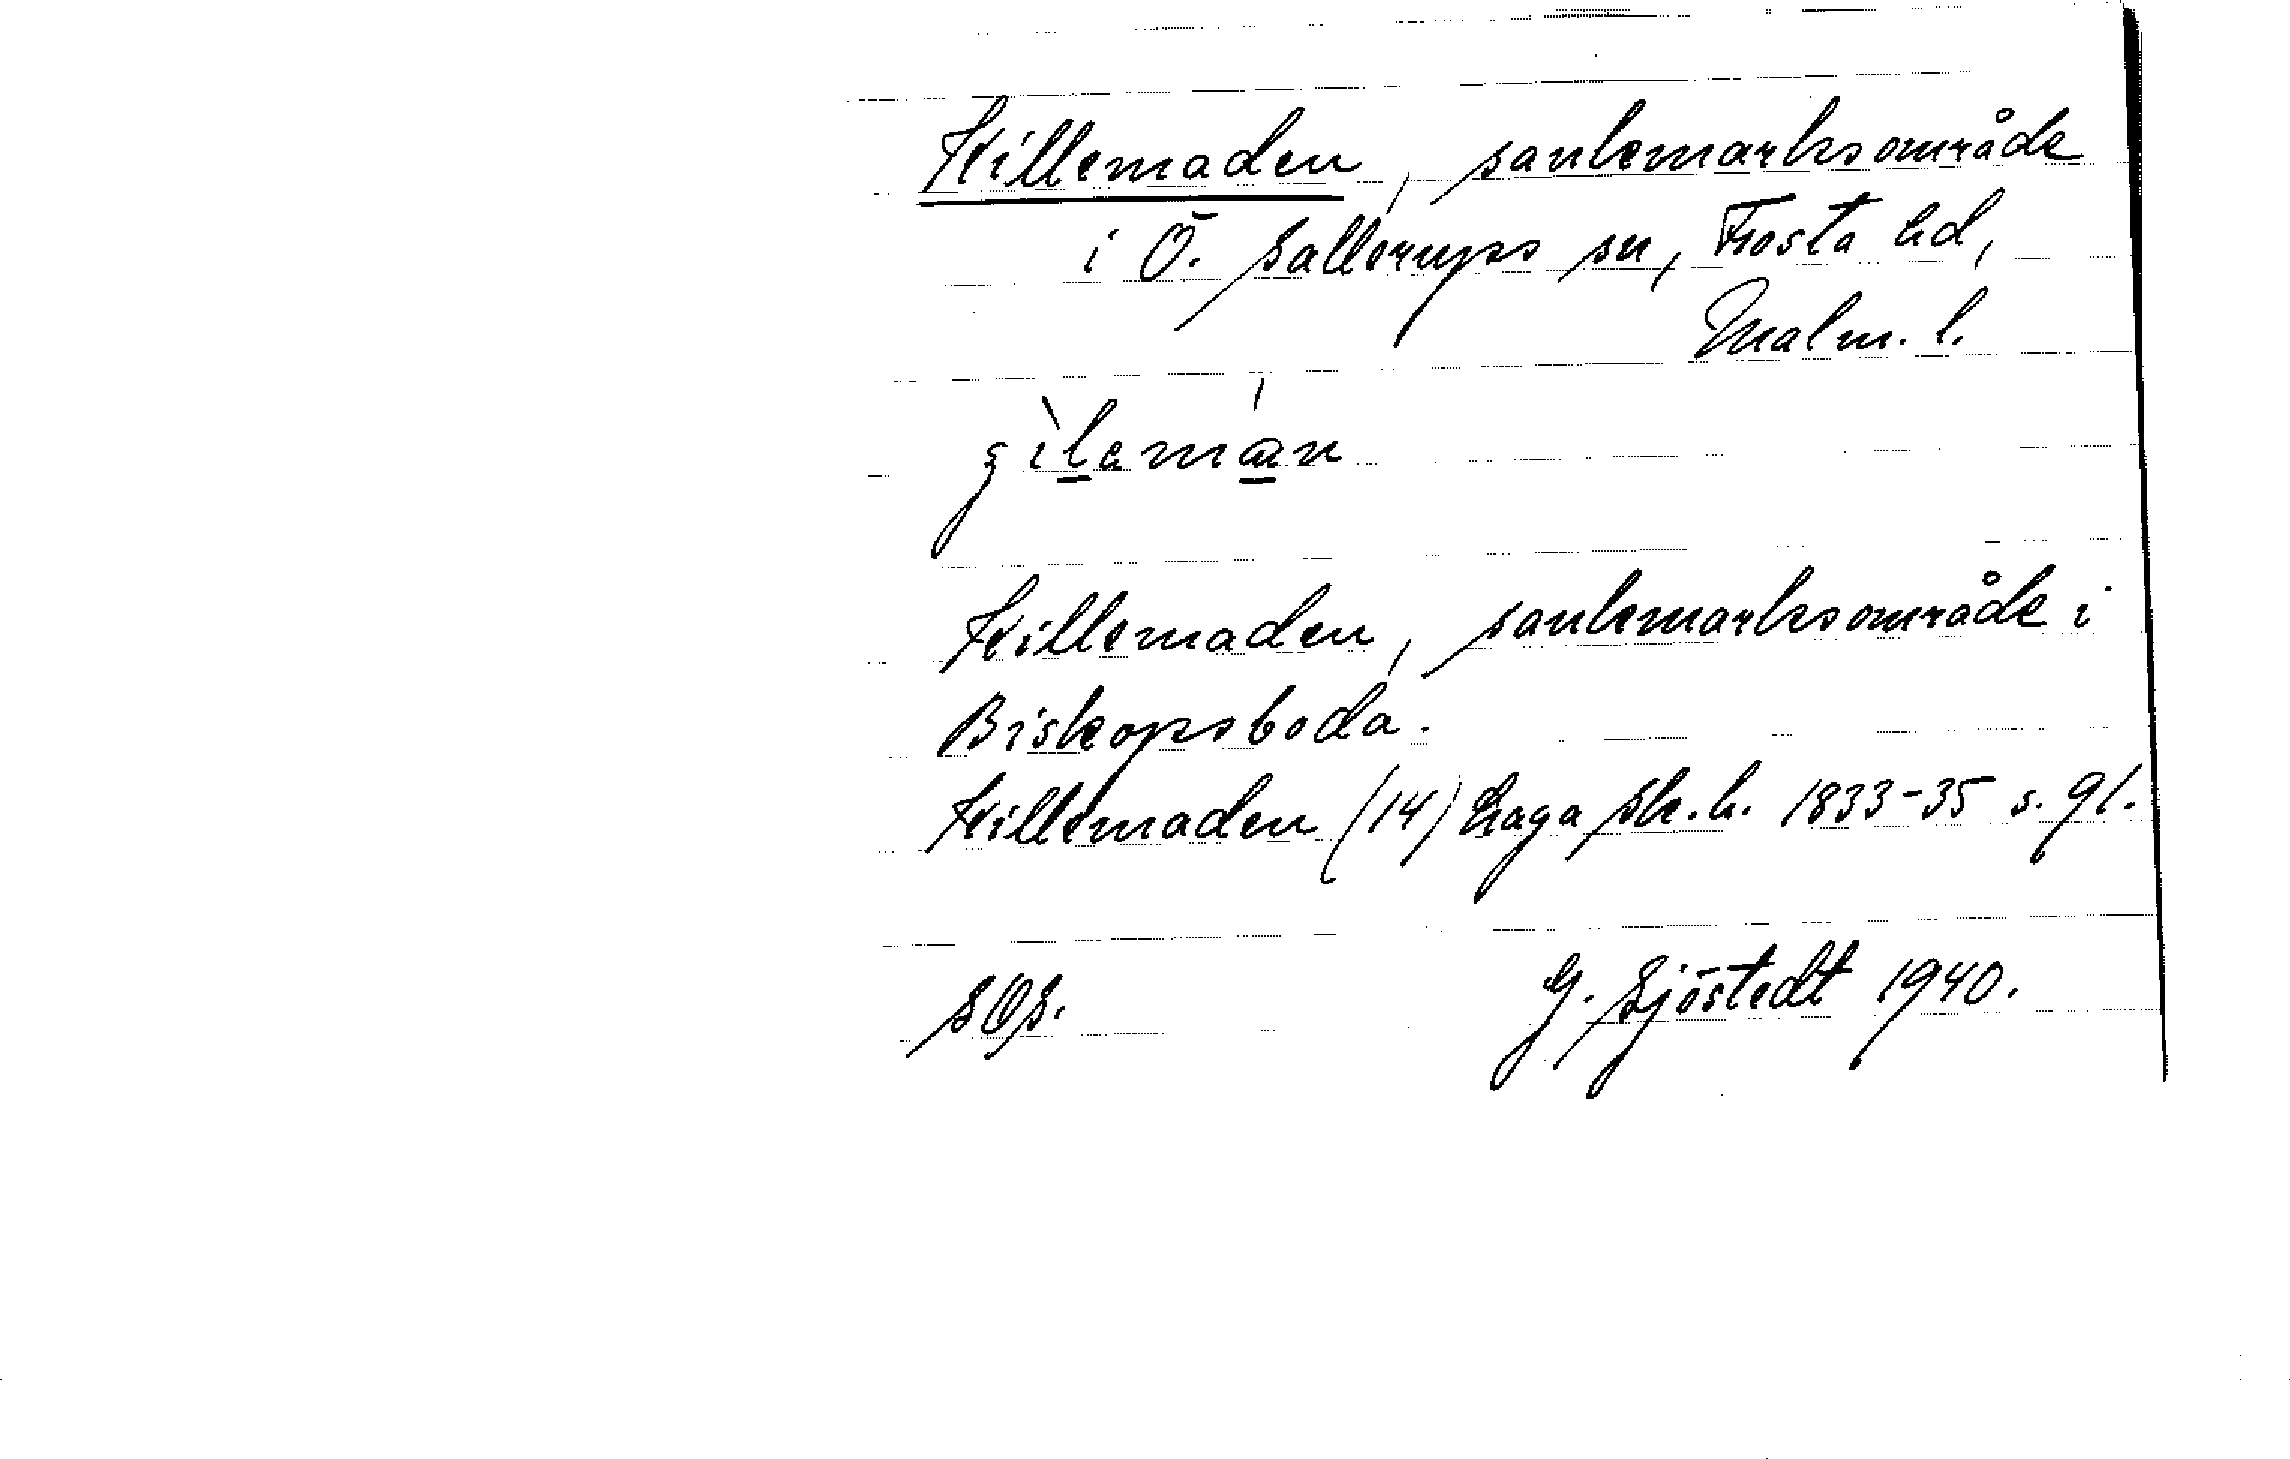 Killemaden, sankmarksområde
i Ö. Sallerups sn, Frosta hd,
Malm. l.
Killemaden, sankmarksområde i
Biskopsboda.
Killemaden (14) Laga Sk. h. 1833-35 s. 91.
SOS.
G. Sjöstedt 1940.